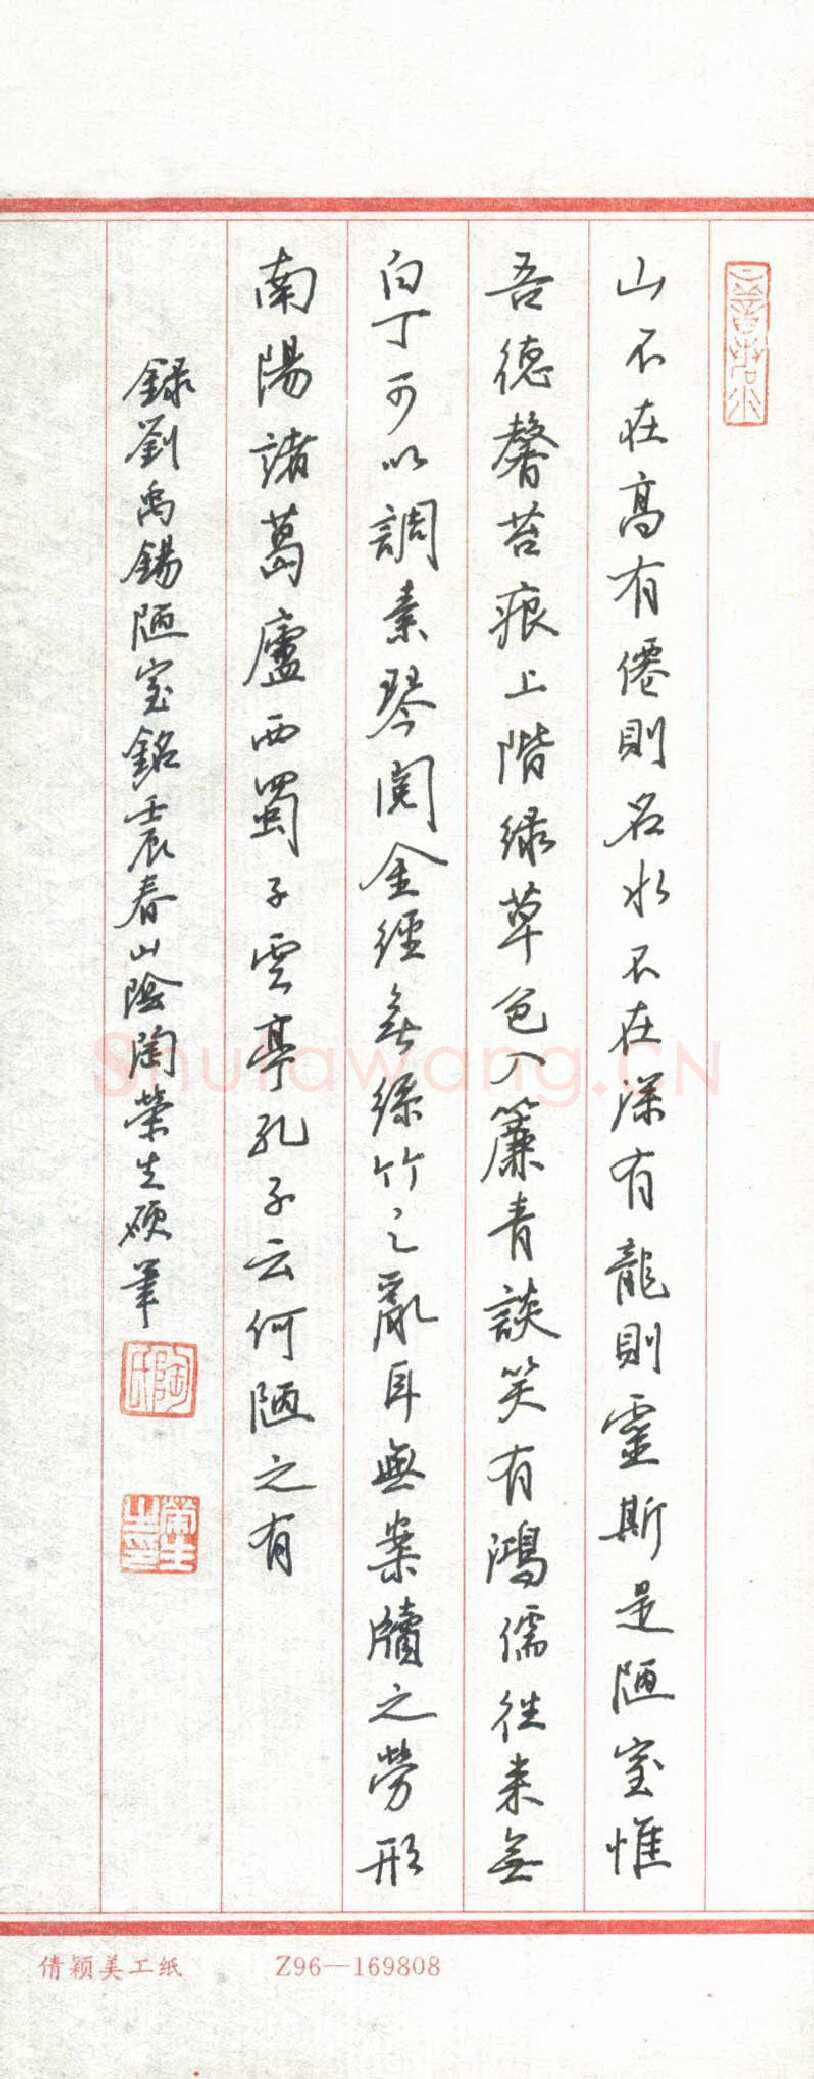 山不在高有僊則名水不在深有龍則靈斯是陋室惟
吾德馨苔痕上階緑草色入簾青談笑有鴻儒往来無
白丁可以調素琴閱金經無絲竹之亂耳無案牘之勞形
南陽諸葛廬西蜀子雲亭孔子云何陋之有
録劉禹錫陋室銘壬辰春山陰陶榮生硬筆
陶氏
榮生之印
Shufawang.CN
倩颖美工纸 Z96—169808